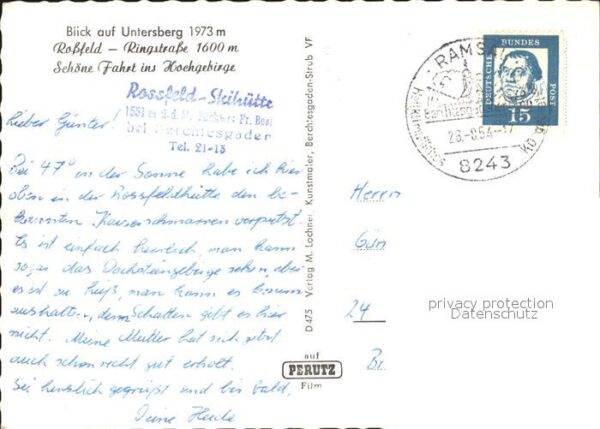 Blick auf Untersberg 1973 m
Roßfeld – Ringstraße 1600 m
Schöne Fahrt ins Hochgebirge
Rossfeld-Skihütte
1551 m ü.d.M. Fr.
bei Berchtesgaden
Tel. 21-13
Lieber Günter!
Bei 47° in der Sonne habe ich hier
oben in der Rossfeldhütte den be-
kannten Kaiserschmarren verputzt.
Es ist einfach herrlich, man kann
sogar das Dachsteingebirge sehen, aber
es ist zu heiß, man kann es kaum
aushalten, denn Schatten gibt es hier
nicht. Meine Mutter hat sich jetzt
auch schon recht gut erholt.
Sei herzlich gegrüßt und bis bald,
Deine
D 475 Verlag M. Lochner, Kunstmaler, Berchtesgaden-Strub VF
auf
PERUTZ
Film
RAMSAU
8243
DEUTSCHE BUNDESPOST
15
Herrn
Gün
24
Br
privacy protection
Datenschutz